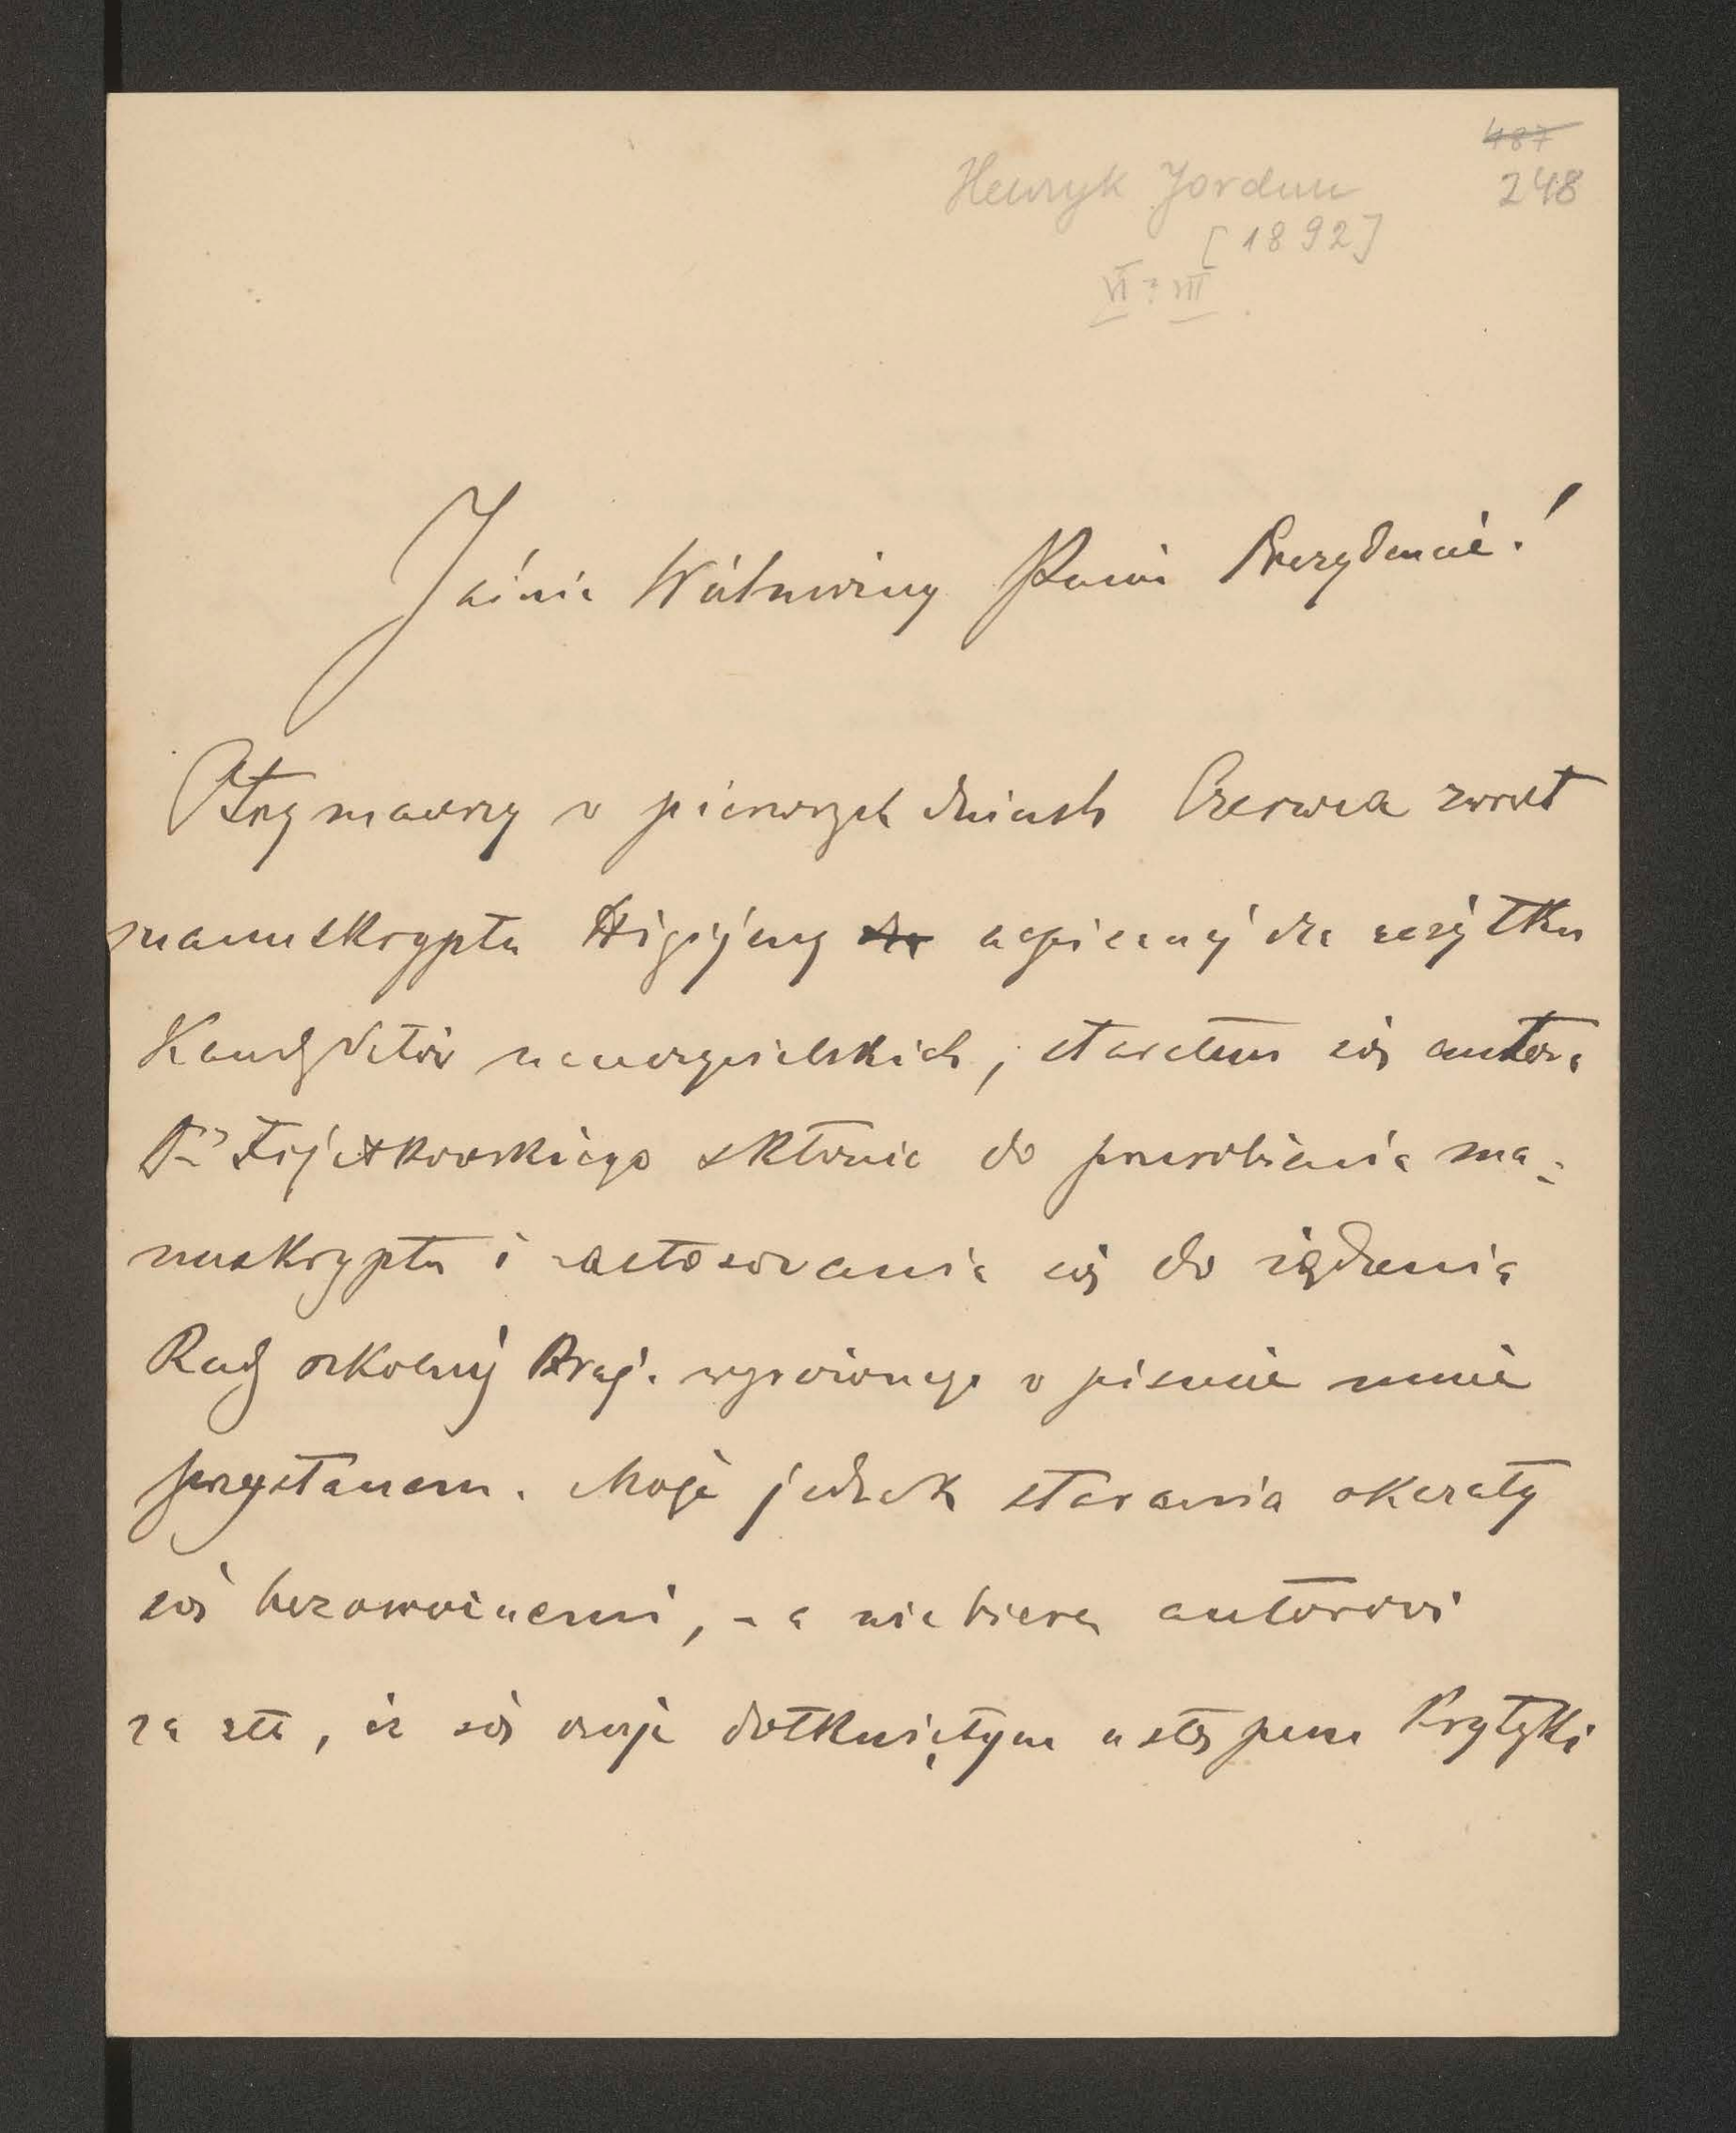 487
248
Henryk Jordan
[1892]
VI ? III
Jaśnie Wielmożny Panie Prezydencie!
Otrzymawszy w pierwszych dniach Czerwca zwrot
manuskryptu Higijeny napisanej dla użytku
Kandydatów nauczycielskich, starałem się autora
Dra Fijałkowskiego skłonić do przerobienia ma-
nuskryptu i zastosowania się do żądania
Rady szkolnej Kraj. wyrażonego w piśmie mnie
przysłanem. Moje jednak starania okazały
się bezowocnemi, - a nie biorę autorowi
za złe, iż się czuje dotkniętym ustępem Krytyki